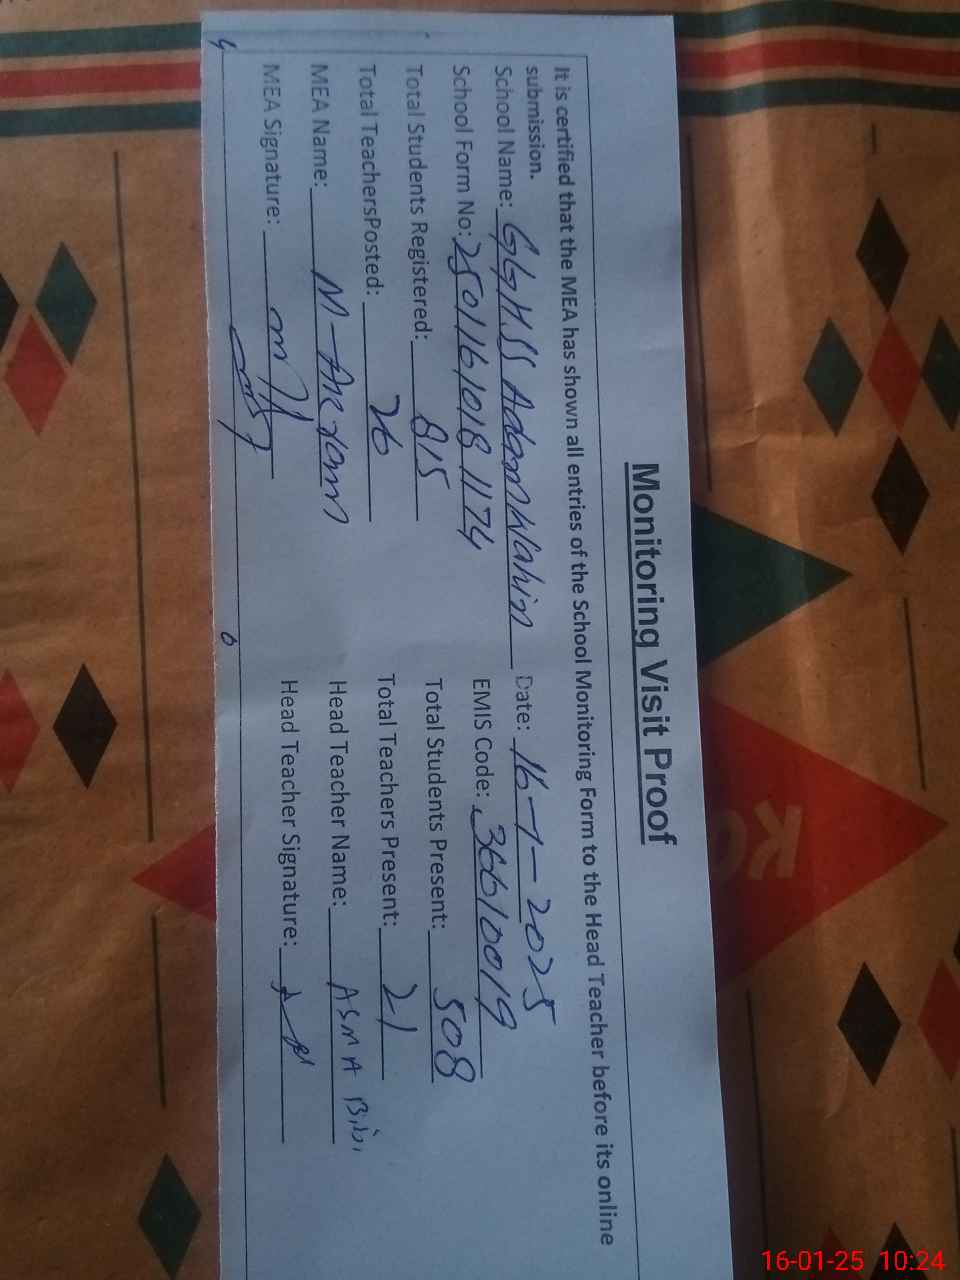 Monitoring Visit Proof
It is certified that the MEA has shown all entries of the School Monitoring Form to the Head Teacher before its online
submission.
School Name: GGHSS Adamwahin Date: 16-1-2025
School Form No: 25011610181174 EMIS Code: 36610019
Total Students Registered: 815 Total Students Present: 508
Total TeachersPosted: 26 Total Teachers Present: 21
MEA Name: M- Head Teacher Name: ASMA Bibi
MEA Signature: Head Teacher Signature:
16-01-25 10:24